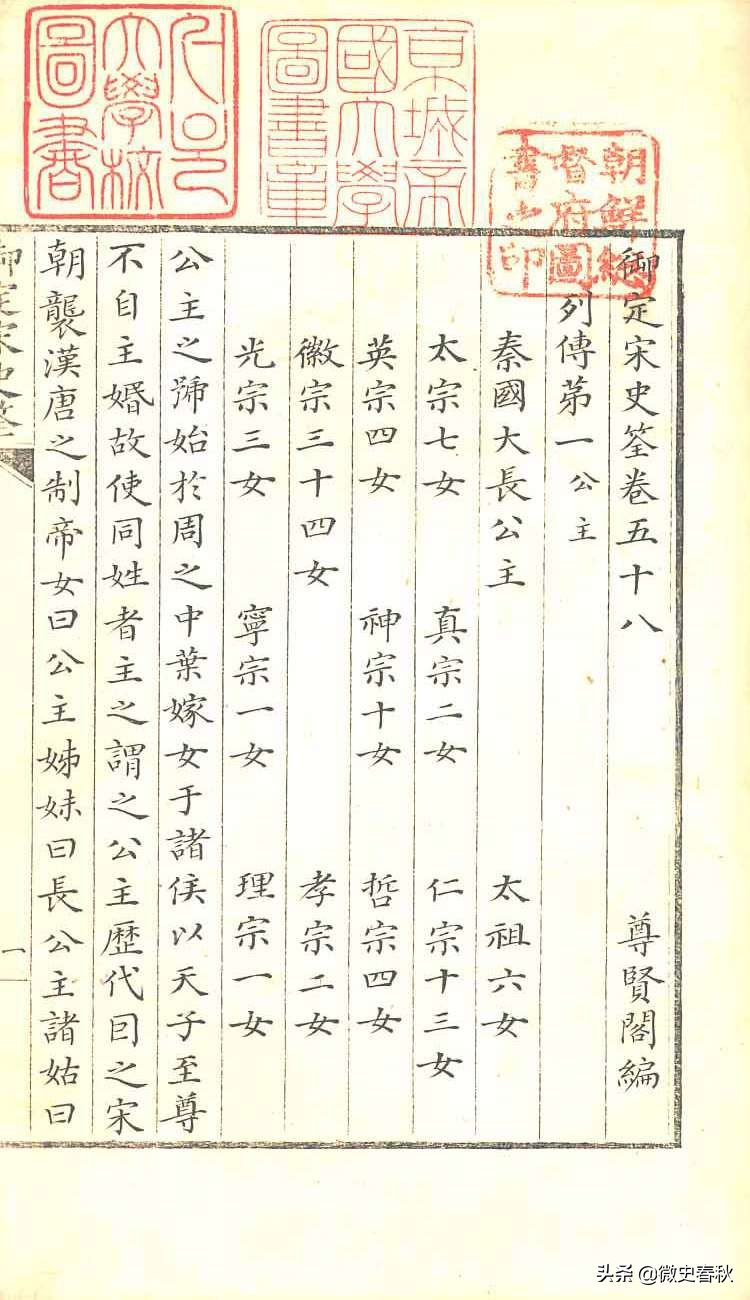 서울
大學校
圖書
京城帝
國大學
圖書章
朝鮮總
督府圖
書之印
御定宋史筌卷五十八 尊賢閣編
列傳第一 公主
秦國大長公主 太祖六女
太宗七女 真宗二女 仁宗十三女
英宗四女 神宗十女 哲宗四女
徽宗三十四女 孝宗二女
光宗三女 寧宗一女 理宗一女
公主之號始於周之中葉嫁女于諸侯以天子至尊
不自主婚故使同姓者主之謂之公主歷代囙之宋
朝襲漢唐之制帝女曰公主姊妹曰長公主諸姑曰
御定宋史筌
一
头条 @微史春秋